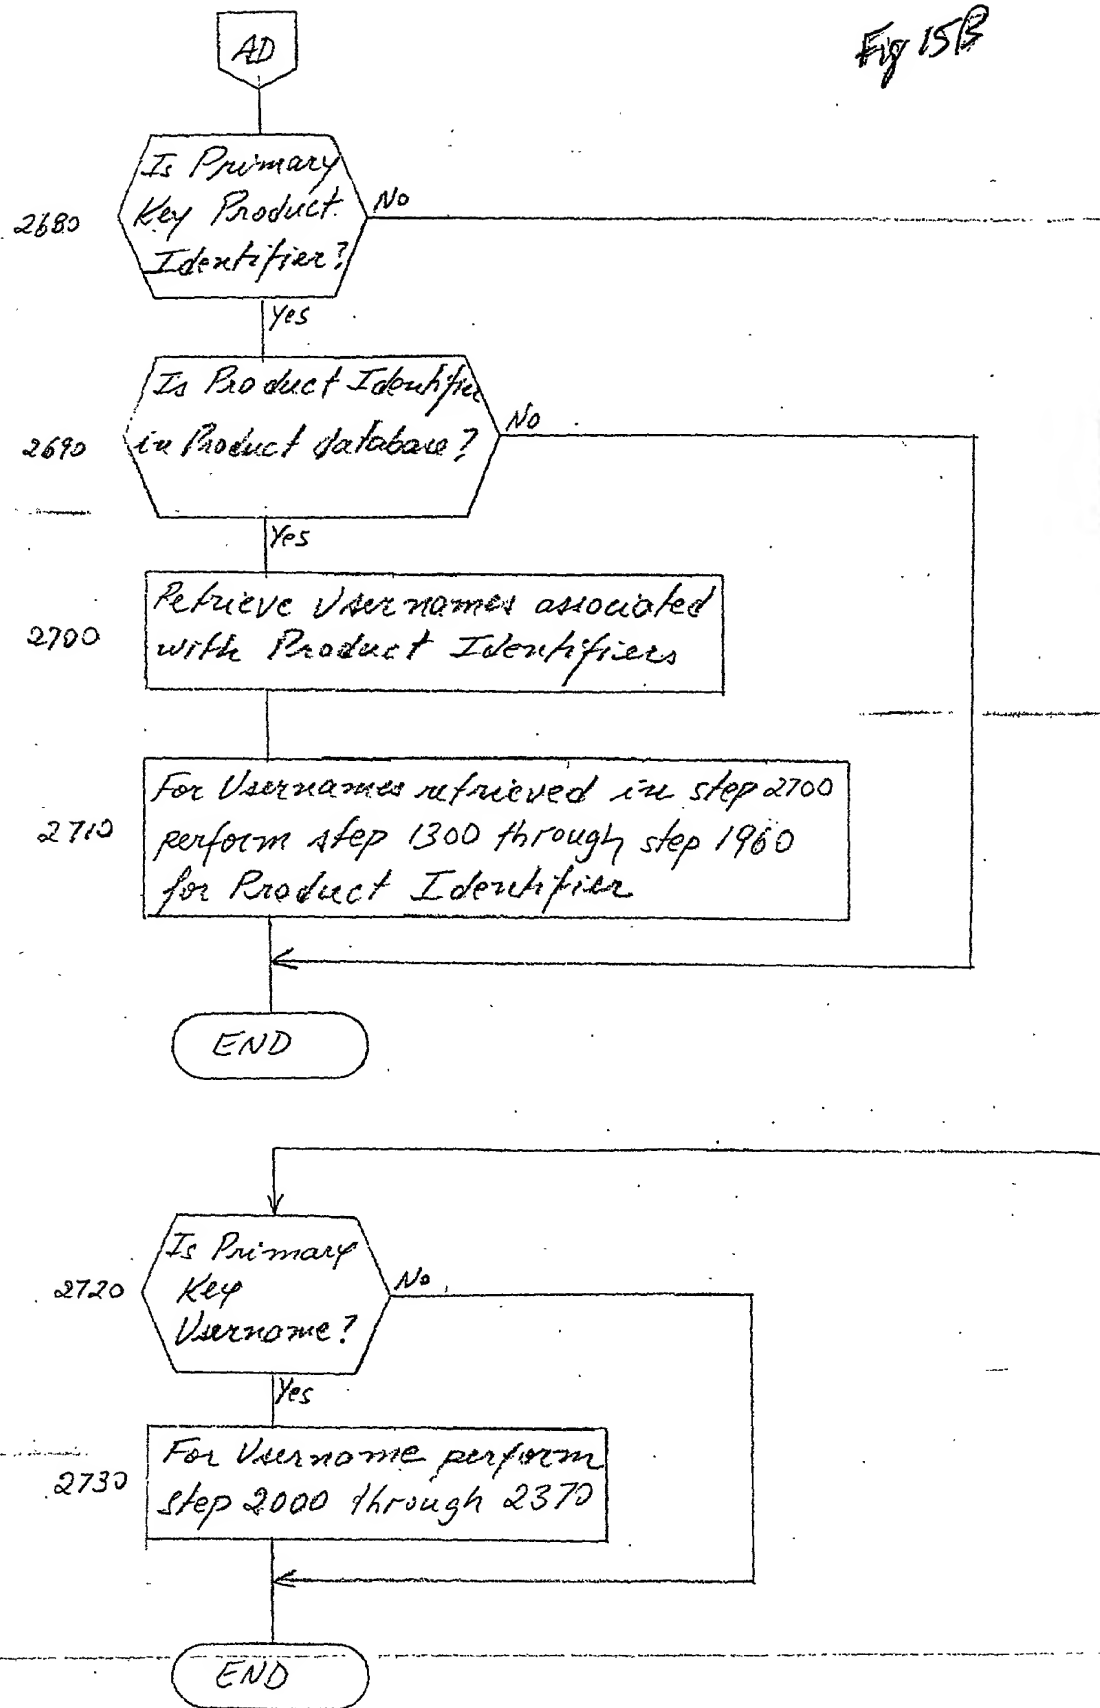 Fig 15B
AD
2680
Is Primary
Key Product
Identifier?
No
Yes
2690
Is Product Identifier
in Product database?
No
Yes
2700
Retrieve Usernames associated
with Product Identifiers
2710
For Usernames retrieved in step 2700
perform step 1300 through step 1960
for Product Identifier
END
2720
Is Primary
Key
Username?
No
Yes
2730
For Username perform
step 2000 through 2370
END